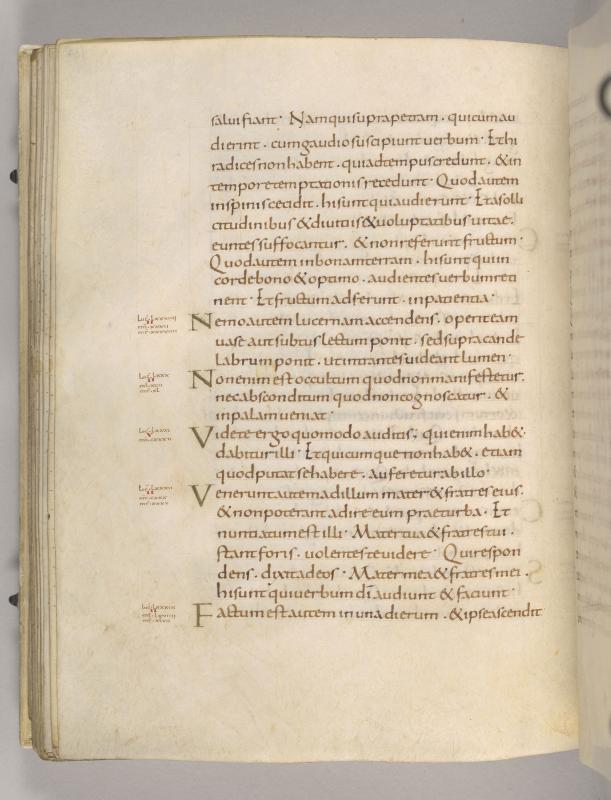 salui fiant · Nam qui supra petram · qui cum au
dierint · cum gaudio suscipiunt uerbum · Et hi
radices non habent · qui ad tempus credunt · & in
tempore temptationis recedunt · Quod autem
in spinis cecidit · hi sunt qui audierunt · Et a solli
citudinibus & diuitiis & uoluptatibus uitae ·
euntes suffocantur · & non referunt fructum ·
Quod autem in bonam terram · hi sunt qui in
corde bono & optimo · audientes uerbum reti
nent · Et fructum adferunt · in patientia ·
Nemo autem lucernam accendens · operit eam
uase aut subtus lectum ponit · sed supra cande
labrum ponit · ut intrantes uideant lumen ·
Non enim est occultum quod non manifestetur ·
nec absconditum quod non cognoscatur · &
in palam ueniat ·
Videte ergo quomodo auditis ; qui enim hab& ·
dabitur illi · Et quicumque non hab& · etiam
quod putat se habere · auferetur ab illo ·
Venerunt autem ad illum mater & fratres eius ·
& non poterant adire eum prae turba · Et
nuntiatum est illi · Mater tua & fratres tui ·
stant foris · uolentes te uidere · Qui respon
dens · dixit ad eos · Mater mea & fratres mei ·
hi sunt qui uerbum dī audiunt & faciunt ·
Factum est autem in una dierum · & ipse ascendit